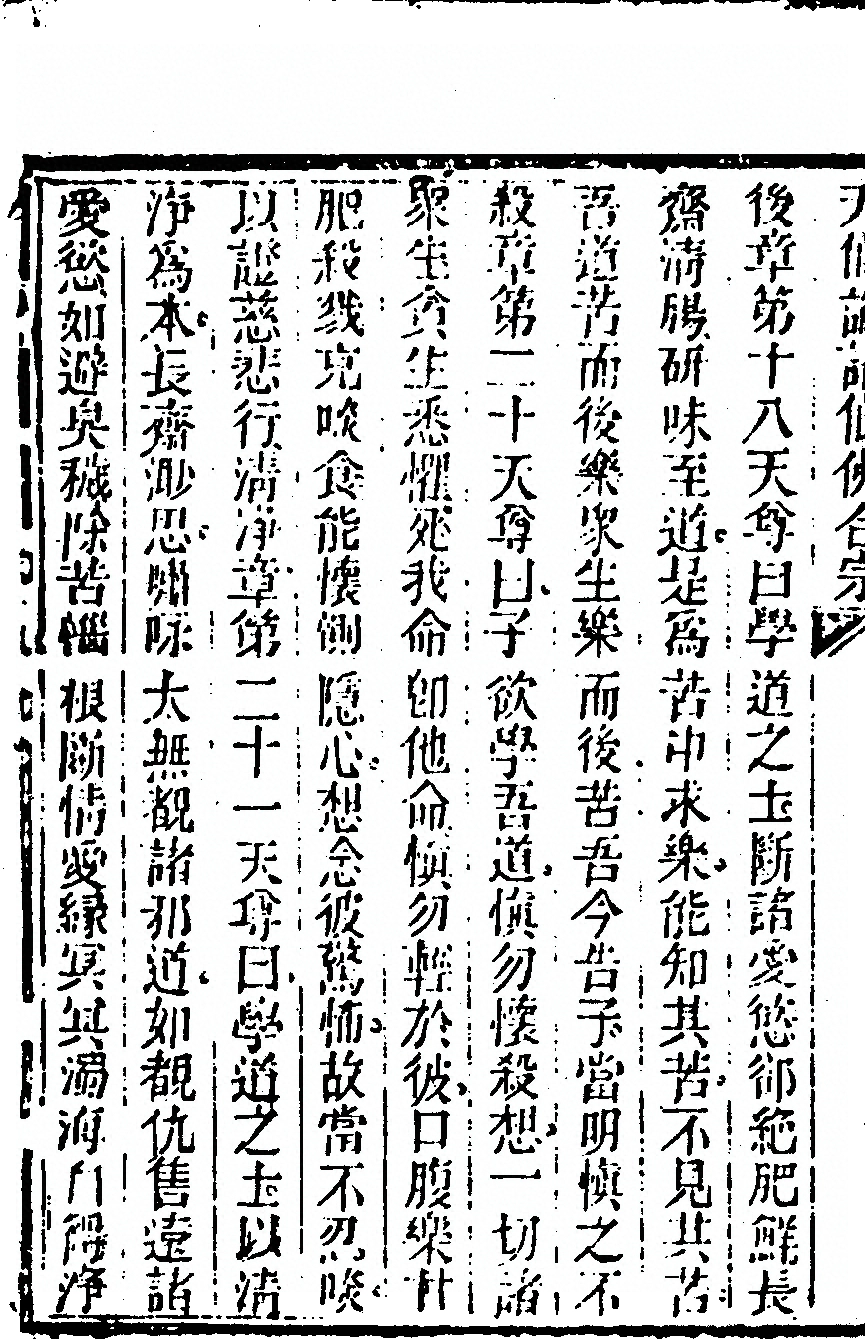 天仙論語仙佛合宗
後章第十八天尊曰學道之士斷諸愛慾卻絶肥鮮長
齋清腸研味至道是爲苦中求樂能知其苦不見其苦
吾道苦而後樂衆生樂而後苦吾今告子當明愼之不
殺章第二十天尊曰子欲學吾道愼勿懷殺想一切諸
衆生貪生悉懼死我命卽他命愼勿輕於彼口腹樂甘
肥殺戮充啖食能懷惻隱心想念彼驚怖故當不忍啖
以證慈悲行清淨章第二十一天尊曰學道之士以清
淨爲本長齋渺思嘯咏太無覩諸邪道如覩仇讐遠諸
愛慾如避臭穢除苦惱根斷情愛縁冥冥濁海自得淨